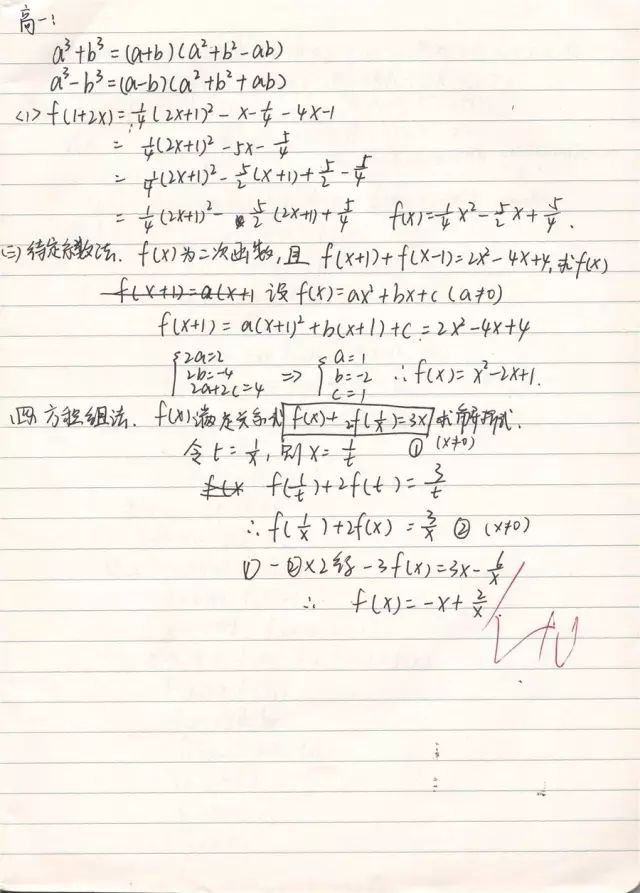 高一:
a³+b³=(a+b)(a²+b²-ab)
a³-b³=(a-b)(a²+b²+ab)
<1> f(1+2x)=¼(2x+1)²-x-¼-4x-1
=¼(2x+1)²-5x-5/4
=¼(2x+1)²-5/2(x+1)+5/2-5/4
=¼(2x+1)²-5/2(2x+1)+5/4 f(x)=¼x²-5/2x+5/4.
(三)待定系数法. f(x)为二次函数,且 f(x+1)+f(x-1)=2x²-4x+4,求f(x)
f(x+1)=a(x+1 设f(x)=ax²+bx+c (a≠0)
f(x+1)=a(x+1)²+b(x+1)+c=2x²-4x+4
{2a=2 {a=1
2b=-4 => b=-2 ∴f(x)=x²-2x+1.
2a+2c=4 c=1
四、方程组法. f(x)满足关系式 f(x)+2f(1/x)=3x 求解析式.
令t=1/x,则x=1/t ① (x≠0)
f(x f(1/t)+2f(t)=3/t
∴f(1/x)+2f(x)=3/x ② (x≠0)
①-②×2得-3f(x)=3x-6/x
∴ f(x)=-x+2/x